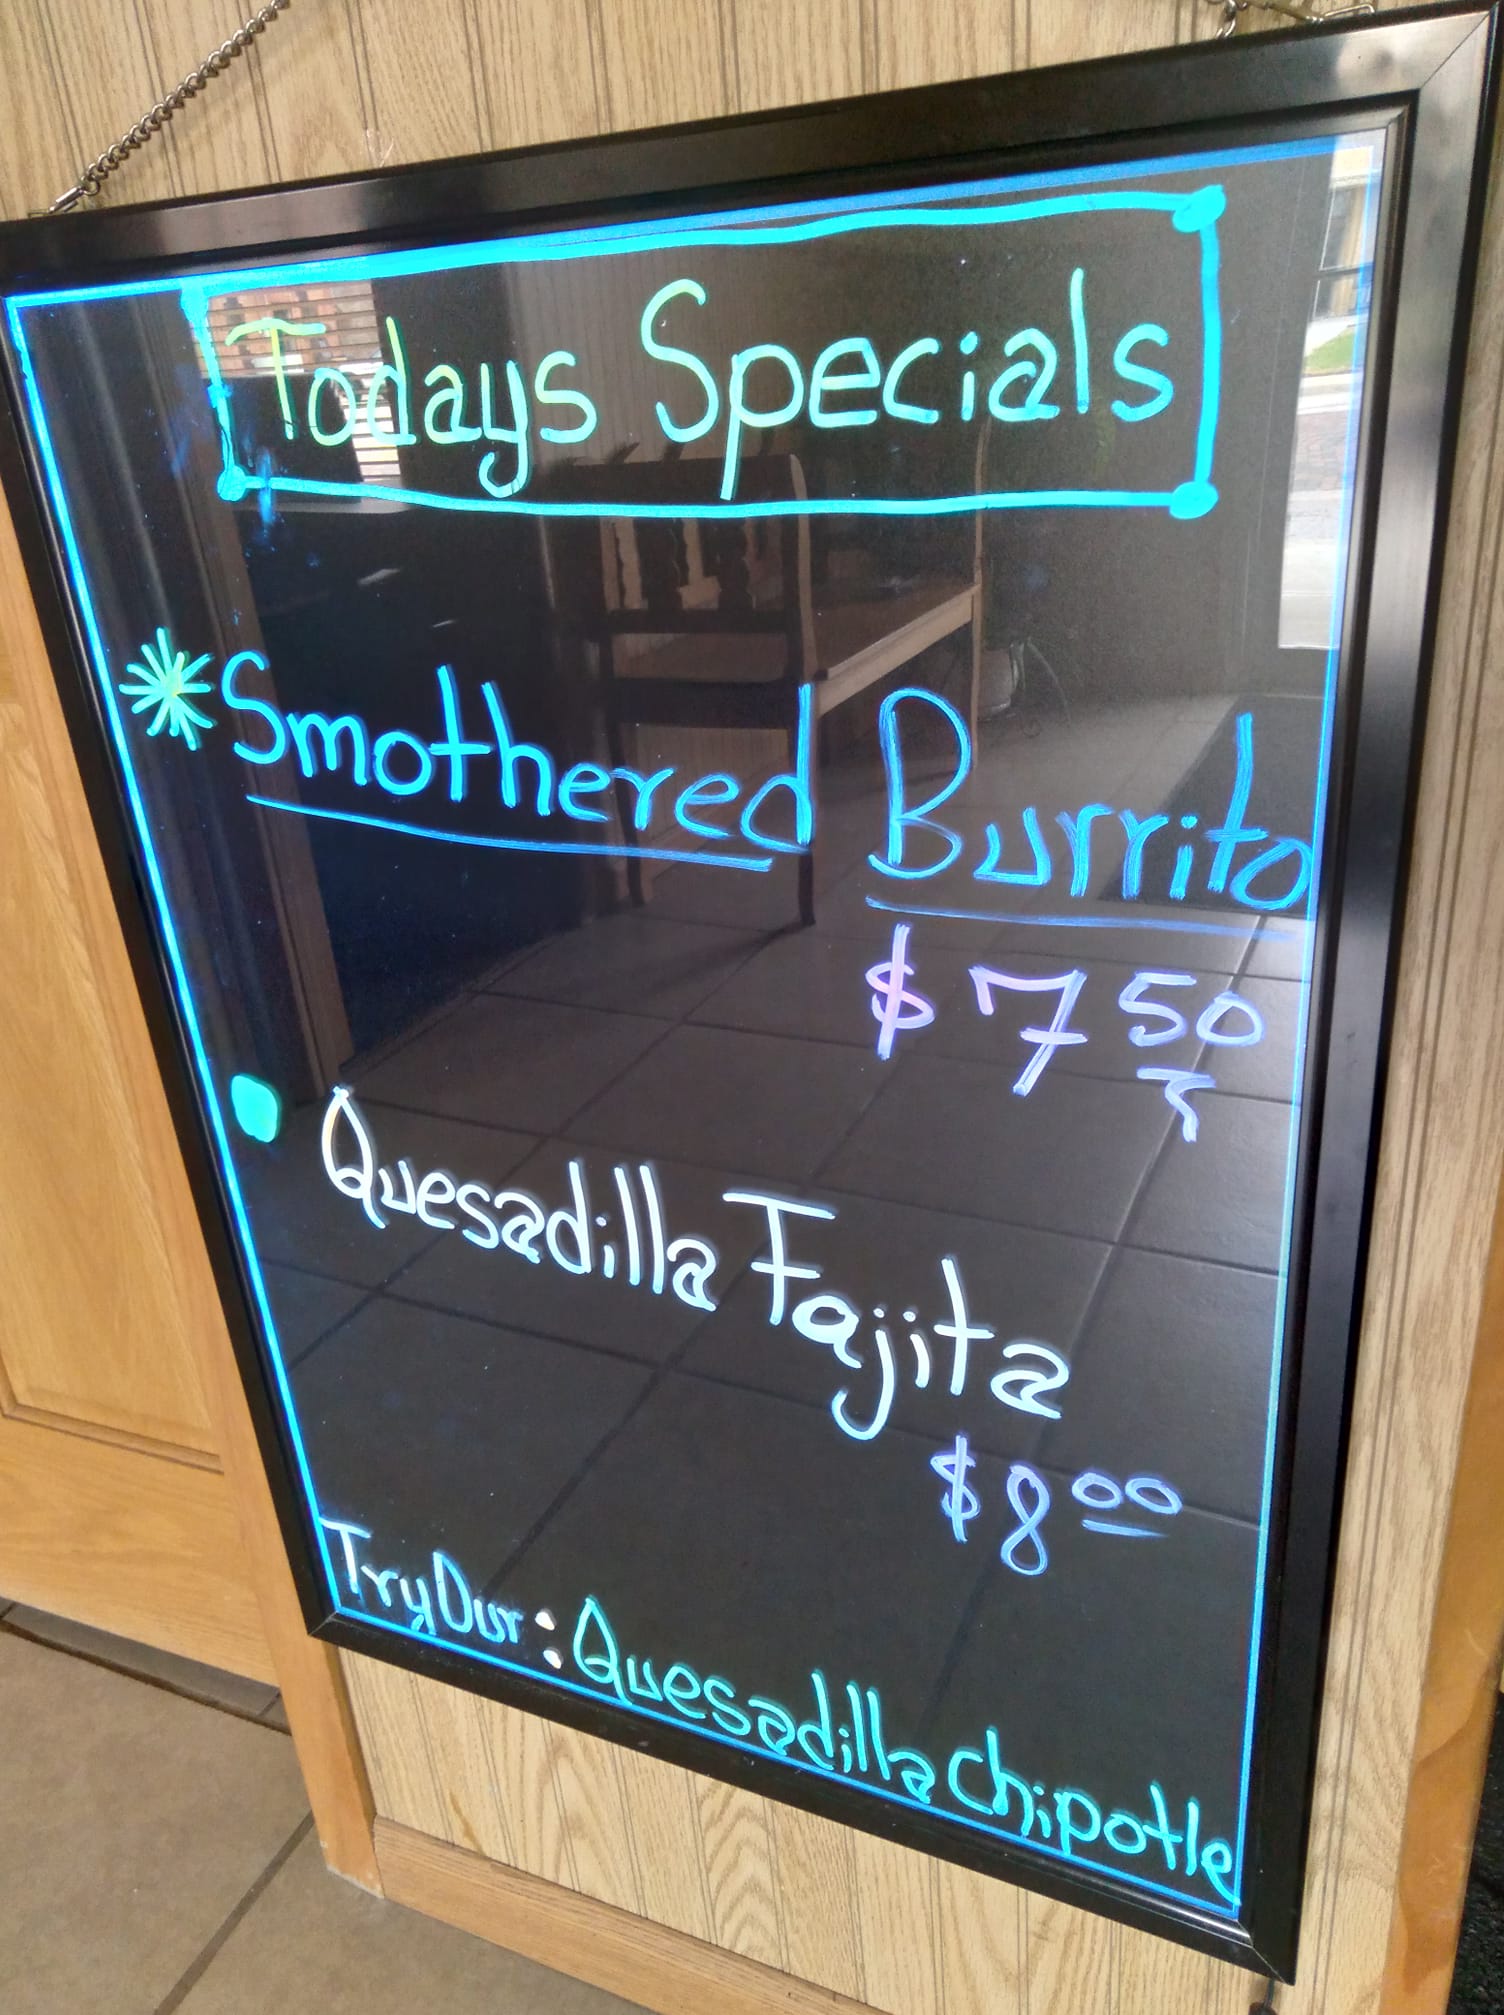 Todays Specials
Smothered Burrito
$ 7 50
Quesadilla Fajita
$ 8 00
Try Our : Quesadilla Chipotle